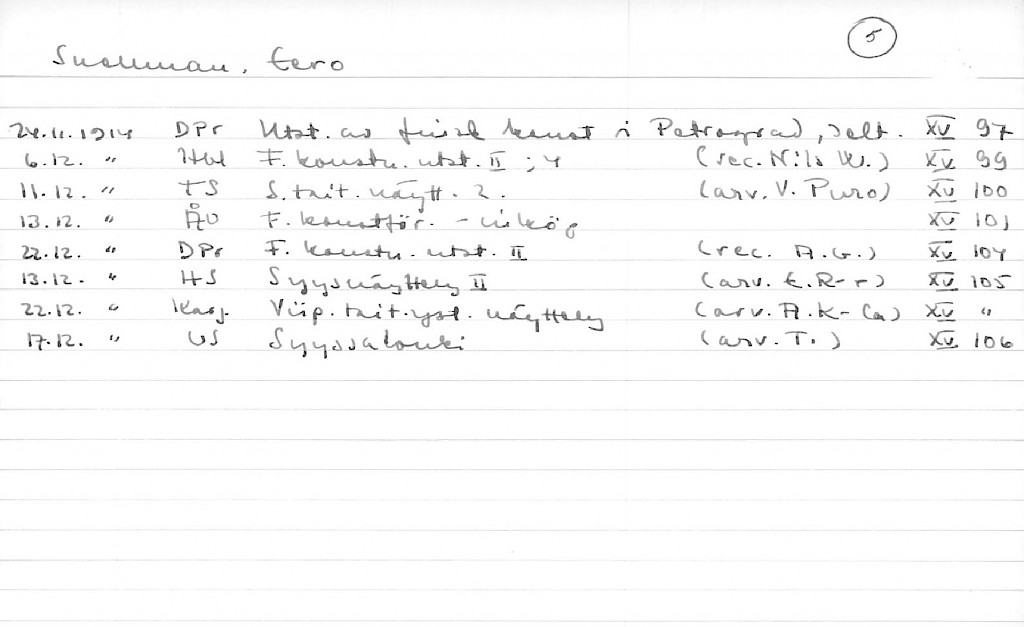 5
Snellman, Eero
24.11.1914 DPr Utst. av finsk konst i Petrograd, delt. XV 97
6.12. " Hbl F. konstn. utst. II ; 4 (rec. Nils W.) XV 99
11.12. " TS S. tait. näytt. 2. (arv. V. Puro) XV 100
13.12. " ÅU F. konstför. - inköp XV 101
22.12. " DPr F. konstn. utst. II (rec. A.G.) XV 104
13.12. " HS Syysnäyttely II (arv. E.R-r) XV 105
22.12. " Karj. Viip. tait. yst. näyttely (arv. A.K-la) XV "
17.12. " US Syyssalonki (arv. T.) XV 106